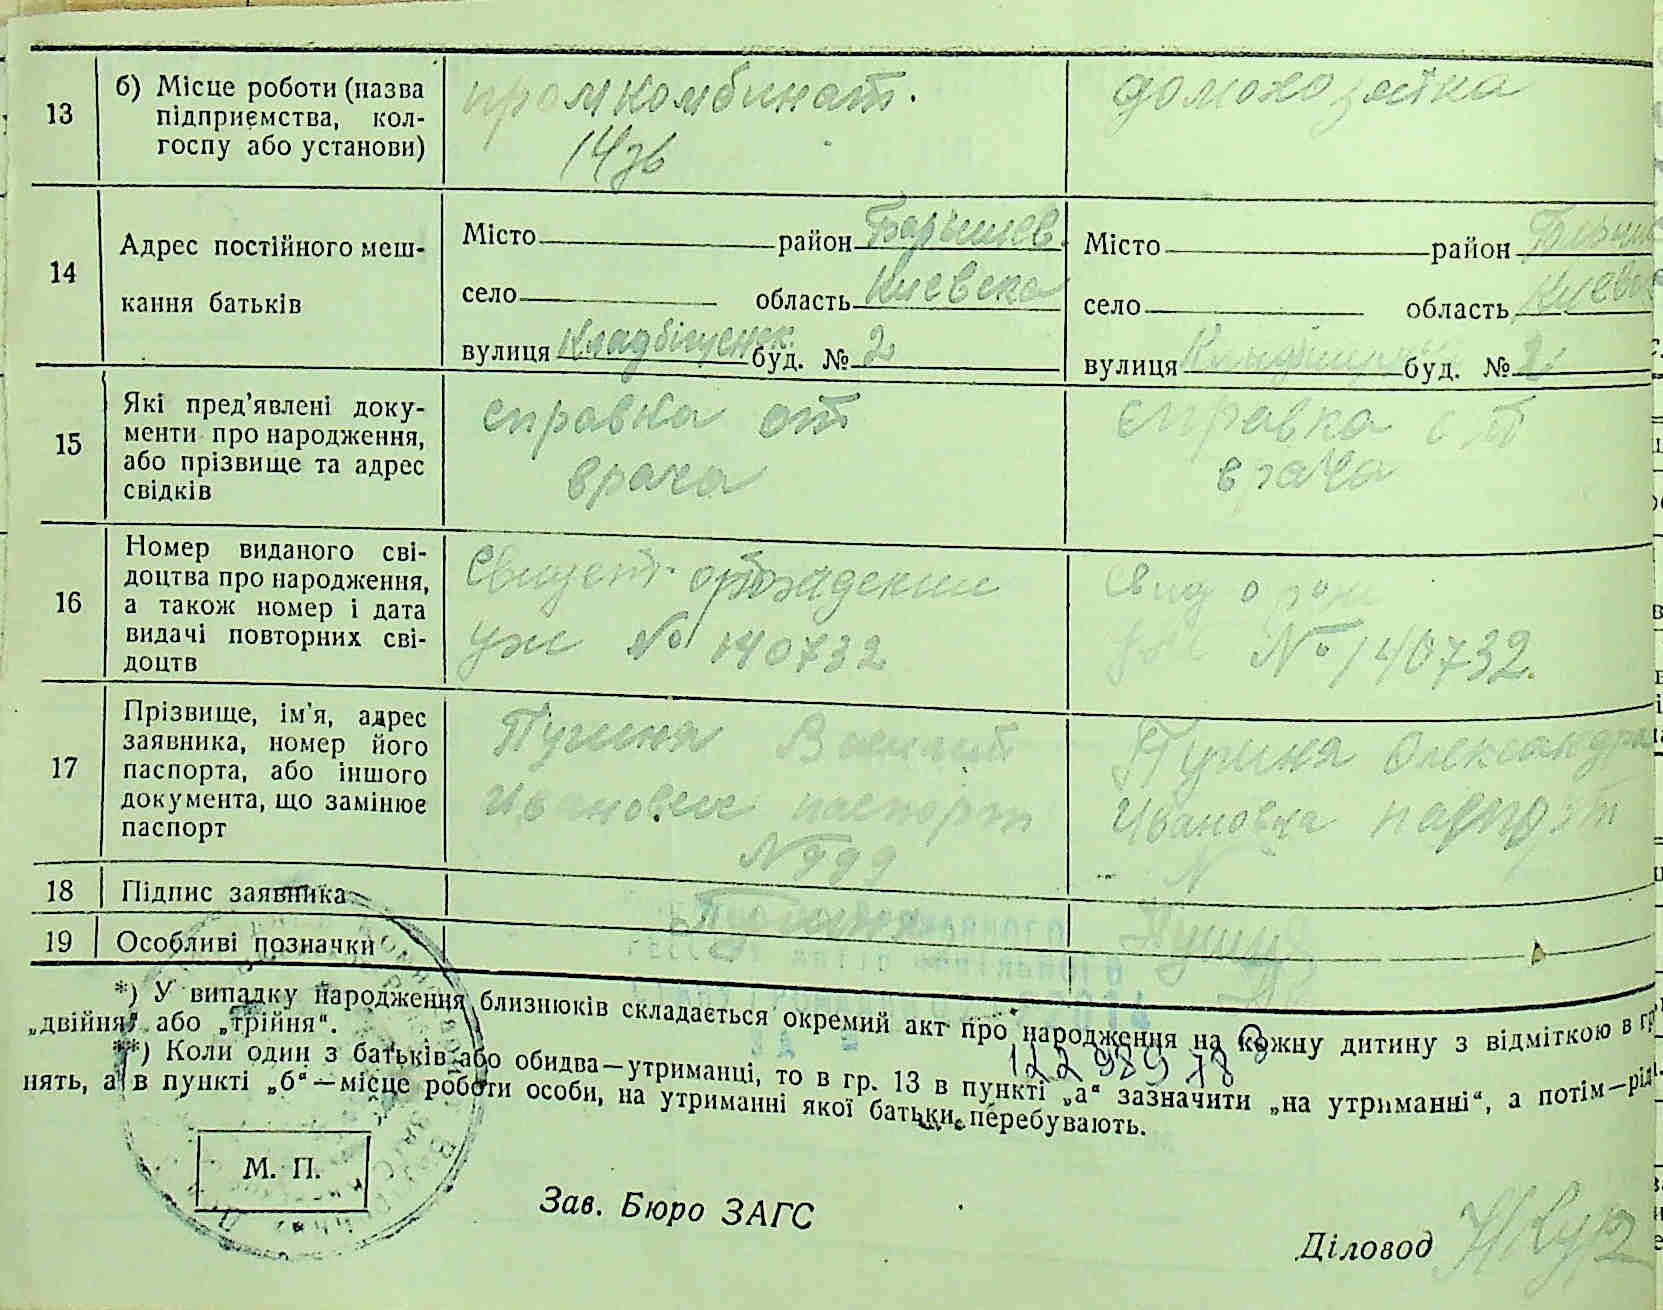 13
б) Місце роботи (назва
підприємства, кол-
госпу або установи)
промкомбинат.
домохозяйка
14
Адрес постійного меш-
кання батьків
Місто район Барышев.
село область Киевска
вулиця Кладбіщенск. буд. № 2
Місто район
село область Киевск
вулиця буд. № 2
15
Які пред'явлені доку-
менти про народження,
або прізвище та адрес
свідків
справка от
врача
справка от
врача
16
Номер виданого сві-
доцтва про народження,
а також номер і дата
видачі повторних сві-
доцтв
УЖ № 140732
№ 140732.
17
Прізвище, ім'я, адрес
заявника, номер його
паспорта, або іншого
документа, що замінює
паспорт
Василий
Иванович паспорт
Олександра
Ивановна паспорт
N
18
Підпис заявника
19
Особливі позначки
*) У випадку народження близнюків складається окремий акт про народження на кожну дитину з відміткою в гр.
„двійня“ або „трійня“.
**) Коли один з батьків або обидва—утриманці, то в гр. 13 в пункті „а“ зазначити „на утриманні“, а потім—рід
нять, а в пункті „б“—місце роботи особи, на утриманні якої батьки перебувають.
М. П.
Зав. Бюро ЗАГС
Діловод